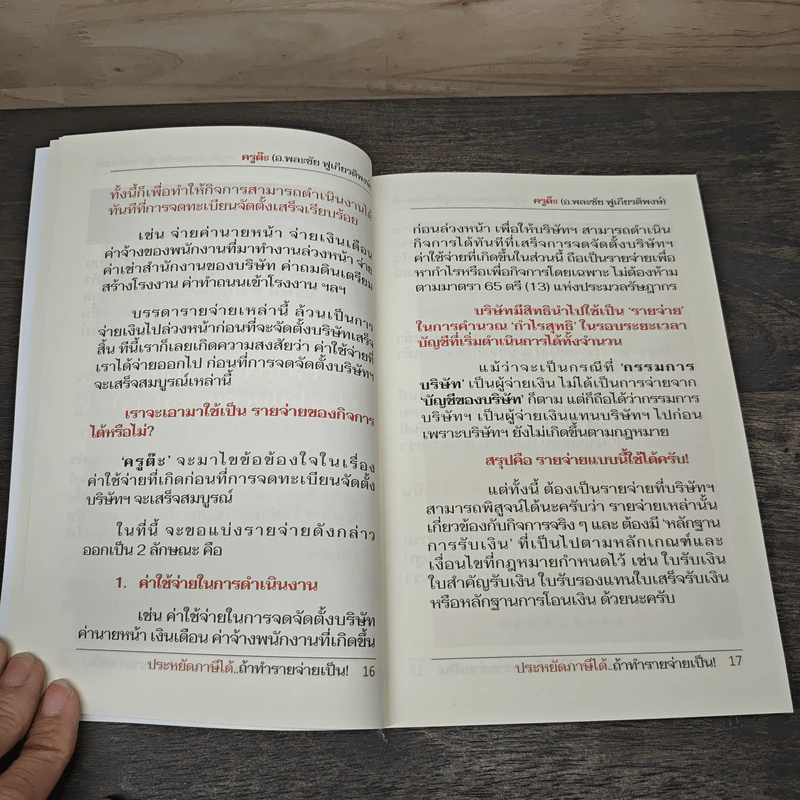 ครูต๊ะ (อ.พละชัย ฟูเกียรติพงษ์)
ทั้งนี้ก็เพื่อทำให้กิจการสามารถดำเนินงานได้
ทันทีที่การจดทะเบียนจัดตั้งเสร็จเรียบร้อย
เช่น จ่ายค่านายหน้า จ่ายเงินเดือน
ค่าจ้างของพนักงานที่มาทำงานล่วงหน้า จ่าย
ค่าเช่าสำนักงานของบริษัท ค่าถมดินเตรียม
สร้างโรงงาน ค่าทำถนนเข้าโรงงาน ฯลฯ
บรรดารายจ่ายเหล่านี้ ล้วนเป็นการ
จ่ายเงินไปล่วงหน้าก่อนที่จะจัดตั้งบริษัทเสร็จ
สิ้น ทีนี้เราก็เลยเกิดความสงสัยว่า ค่าใช้จ่ายที่
เราได้จ่ายออกไป ก่อนที่การจดจัดตั้งบริษัทฯ
จะเสร็จสมบูรณ์เหล่านี้
เราจะเอามาใช้เป็น รายจ่ายของกิจการ
ได้หรือไม่?
‘ครูต๊ะ’ จะมาไขข้อข้องใจในเรื่อง
ค่าใช้จ่ายที่เกิดก่อนที่การจดทะเบียนจัดตั้ง
บริษัทฯ จะเสร็จสมบูรณ์
ในที่นี้ จะขอแบ่งรายจ่ายดังกล่าว
ออกเป็น 2 ลักษณะ คือ
1. ค่าใช้จ่ายในการดำเนินงาน
เช่น ค่าใช้จ่ายในการจดจัดตั้งบริษัท
ค่านายหน้า เงินเดือน ค่าจ้างพนักงานที่เกิดขึ้น
ประหยัดภาษีได้..ถ้าทำรายจ่ายเป็น! 16
ครูต๊ะ (อ.พละชัย ฟูเกียรติพงษ์)
ก่อนล่วงหน้า เพื่อให้บริษัทฯ สามารถดำเนิน
กิจการได้ทันทีที่เสร็จการจดจัดตั้งบริษัทฯ
ค่าใช้จ่ายที่เกิดขึ้นในส่วนนี้ ถือเป็นรายจ่ายเพื่อ
หากำไรหรือเพื่อกิจการโดยเฉพาะ ไม่ต้องห้าม
ตามมาตรา 65 ตรี (13) แห่งประมวลรัษฎากร
บริษัทมีสิทธินำไปใช้เป็น ‘รายจ่าย’
ในการคำนวณ ‘กำไรสุทธิ’ ในรอบระยะเวลา
บัญชีที่เริ่มดำเนินการได้ทั้งจำนวน
แม้ว่าจะเป็นกรณีที่ ‘กรรมการ
บริษัท’ เป็นผู้จ่ายเงิน ไม่ได้เป็นการจ่ายจาก
‘บัญชีของบริษัท’ ก็ตาม แต่ก็ถือได้ว่ากรรมการ
บริษัทฯ เป็นผู้จ่ายเงินแทนบริษัทฯ ไปก่อน
เพราะบริษัทฯ ยังไม่เกิดขึ้นตามกฎหมาย
สรุปคือ รายจ่ายแบบนี้ใช้ได้ครับ!
แต่ทั้งนี้ ต้องเป็นรายจ่ายที่บริษัทฯ
สามารถพิสูจน์ได้นะครับว่า รายจ่ายเหล่านั้น
เกี่ยวข้องกับกิจการจริง ๆ และ ต้องมี ‘หลักฐาน
การรับเงิน’ ที่เป็นไปตามหลักเกณฑ์และ
เงื่อนไขที่กฎหมายกำหนดไว้ เช่น ใบรับเงิน
ใบสำคัญรับเงิน ใบรับรองแทนใบเสร็จรับเงิน
หรือหลักฐานการโอนเงิน ด้วยนะครับ
ประหยัดภาษีได้..ถ้าทำรายจ่ายเป็น! 17